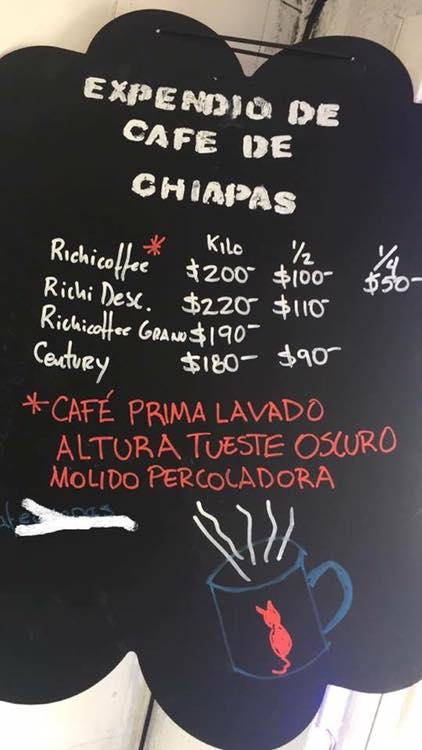 EXPENDIO DE
CAFE DE
CHIAPAS
Kilo 1/2 1/4
Richicoffee* $200- $100- $50-
Richi Desc. $220- $110-
Richicoffee GRANO $190-
Century $180- $90-
*CAFÉ PRIMA LAVADO
ALTURA TUESTE OSCURO
MOLIDO PERCOLADORA